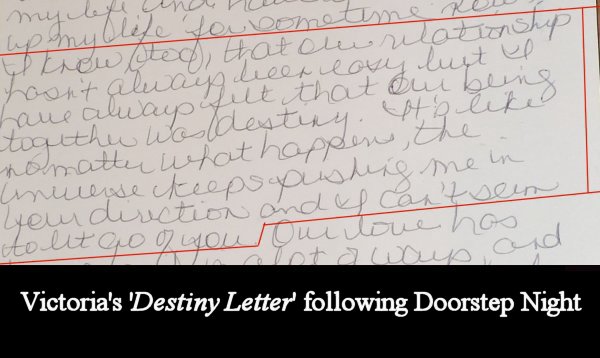 my life and
up my life for sometime now
I know (too) that our relationship
hasn't always been easy but I
have always felt that our being
together was destiny. It's like
no matter what happens, the
universe keeps pushing me in
your direction and I can't seem
to let go of you. Our love has
a lot of ways, and
Victoria's 'Destiny Letter' following Doorstep Night